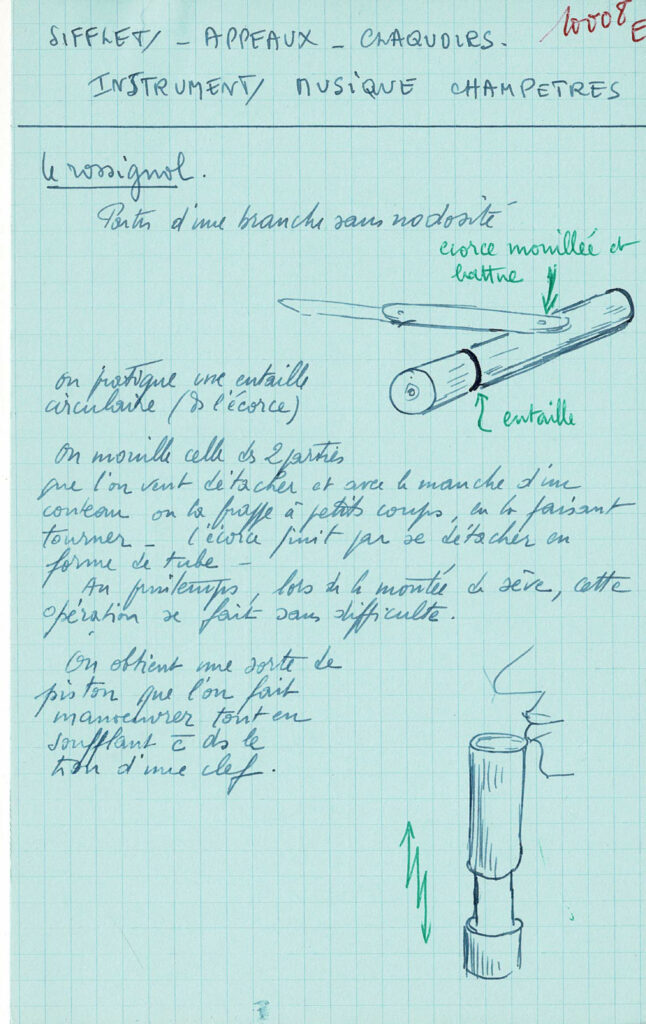 SIFFLETS - APPEAUX - CLAQUOIRS.
10008
E
INSTRUMENTS MUSIQUE CHAMPETRES
le rossignol.
Partir d'une branche sans nodosité
écorce mouillée et
battue
on pratique une entaille
circulaire (ds l'écorce)
entaille
On mouille celle des 2 parties
que l'on veut détacher et avec le manche d'un
couteau on la frappe à petits coups, en la faisant
tourner - l'écorce finit par se détacher en
forme de tube -
Au printemps, lors de la montée de sève, cette
opération se fait sans difficulté.
On obtient une sorte de
piston que l'on fait
manoeuvrer tout en
soufflant c̄ ds le
trou d'une clef.